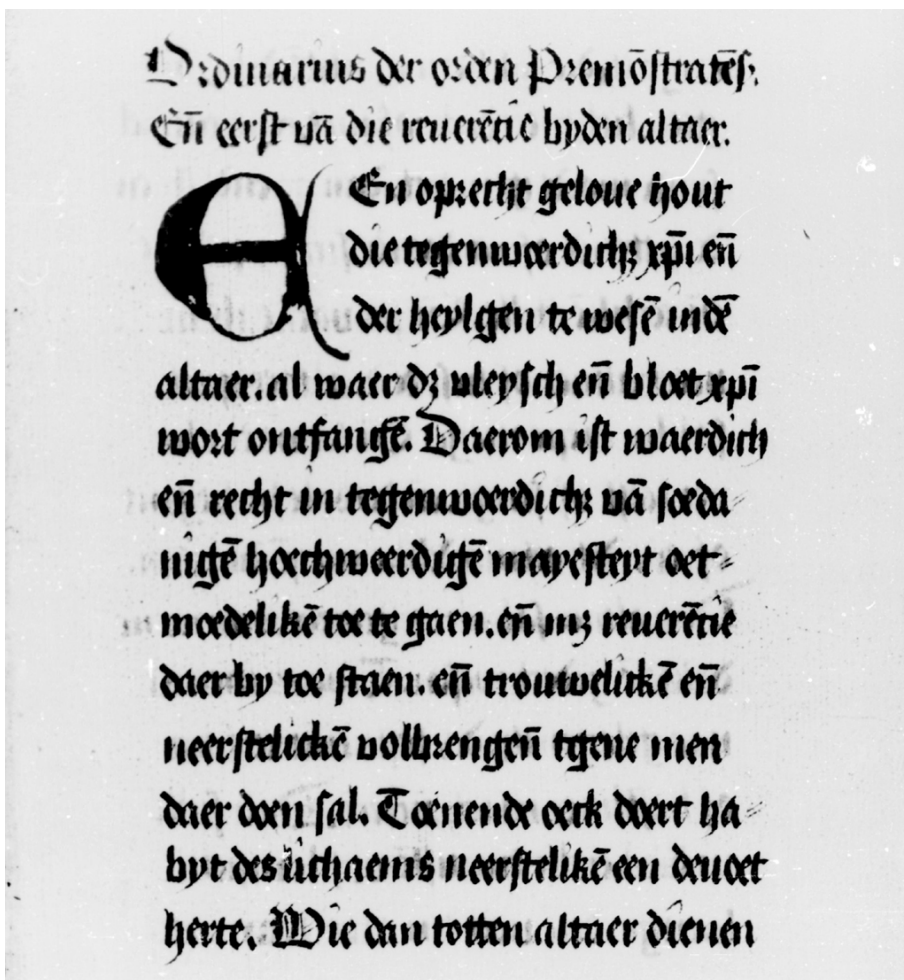 Ordinarius der orden Premōstratēs.
Eñ eerst vā die reuerētie byden altaer.
EEn oprecht geloue hout
die tegenwoerdichꝫ xp̄i eñ
der heylgen te wesē indē
altaer. al waer dꝫ vleysch eñ bloet xp̄i
wort ontfangē. Daerom ist waerdich
eñ recht in tegenwoerdichꝫ vā soeda⸗
nigē hoechweerdigē mayesteyt oet⸗
moedelikē toe te gaen. eñ mꝫ reuerētie
daer by toe staen. eñ trouwelickē eñ
neerstelickē volbrengen̄ tgene men
daer doen sal. Toenende oeck doert ha⸗
byt des lichaems neerstelikē een deuoet
herte. Wie dan totten altaer dienen